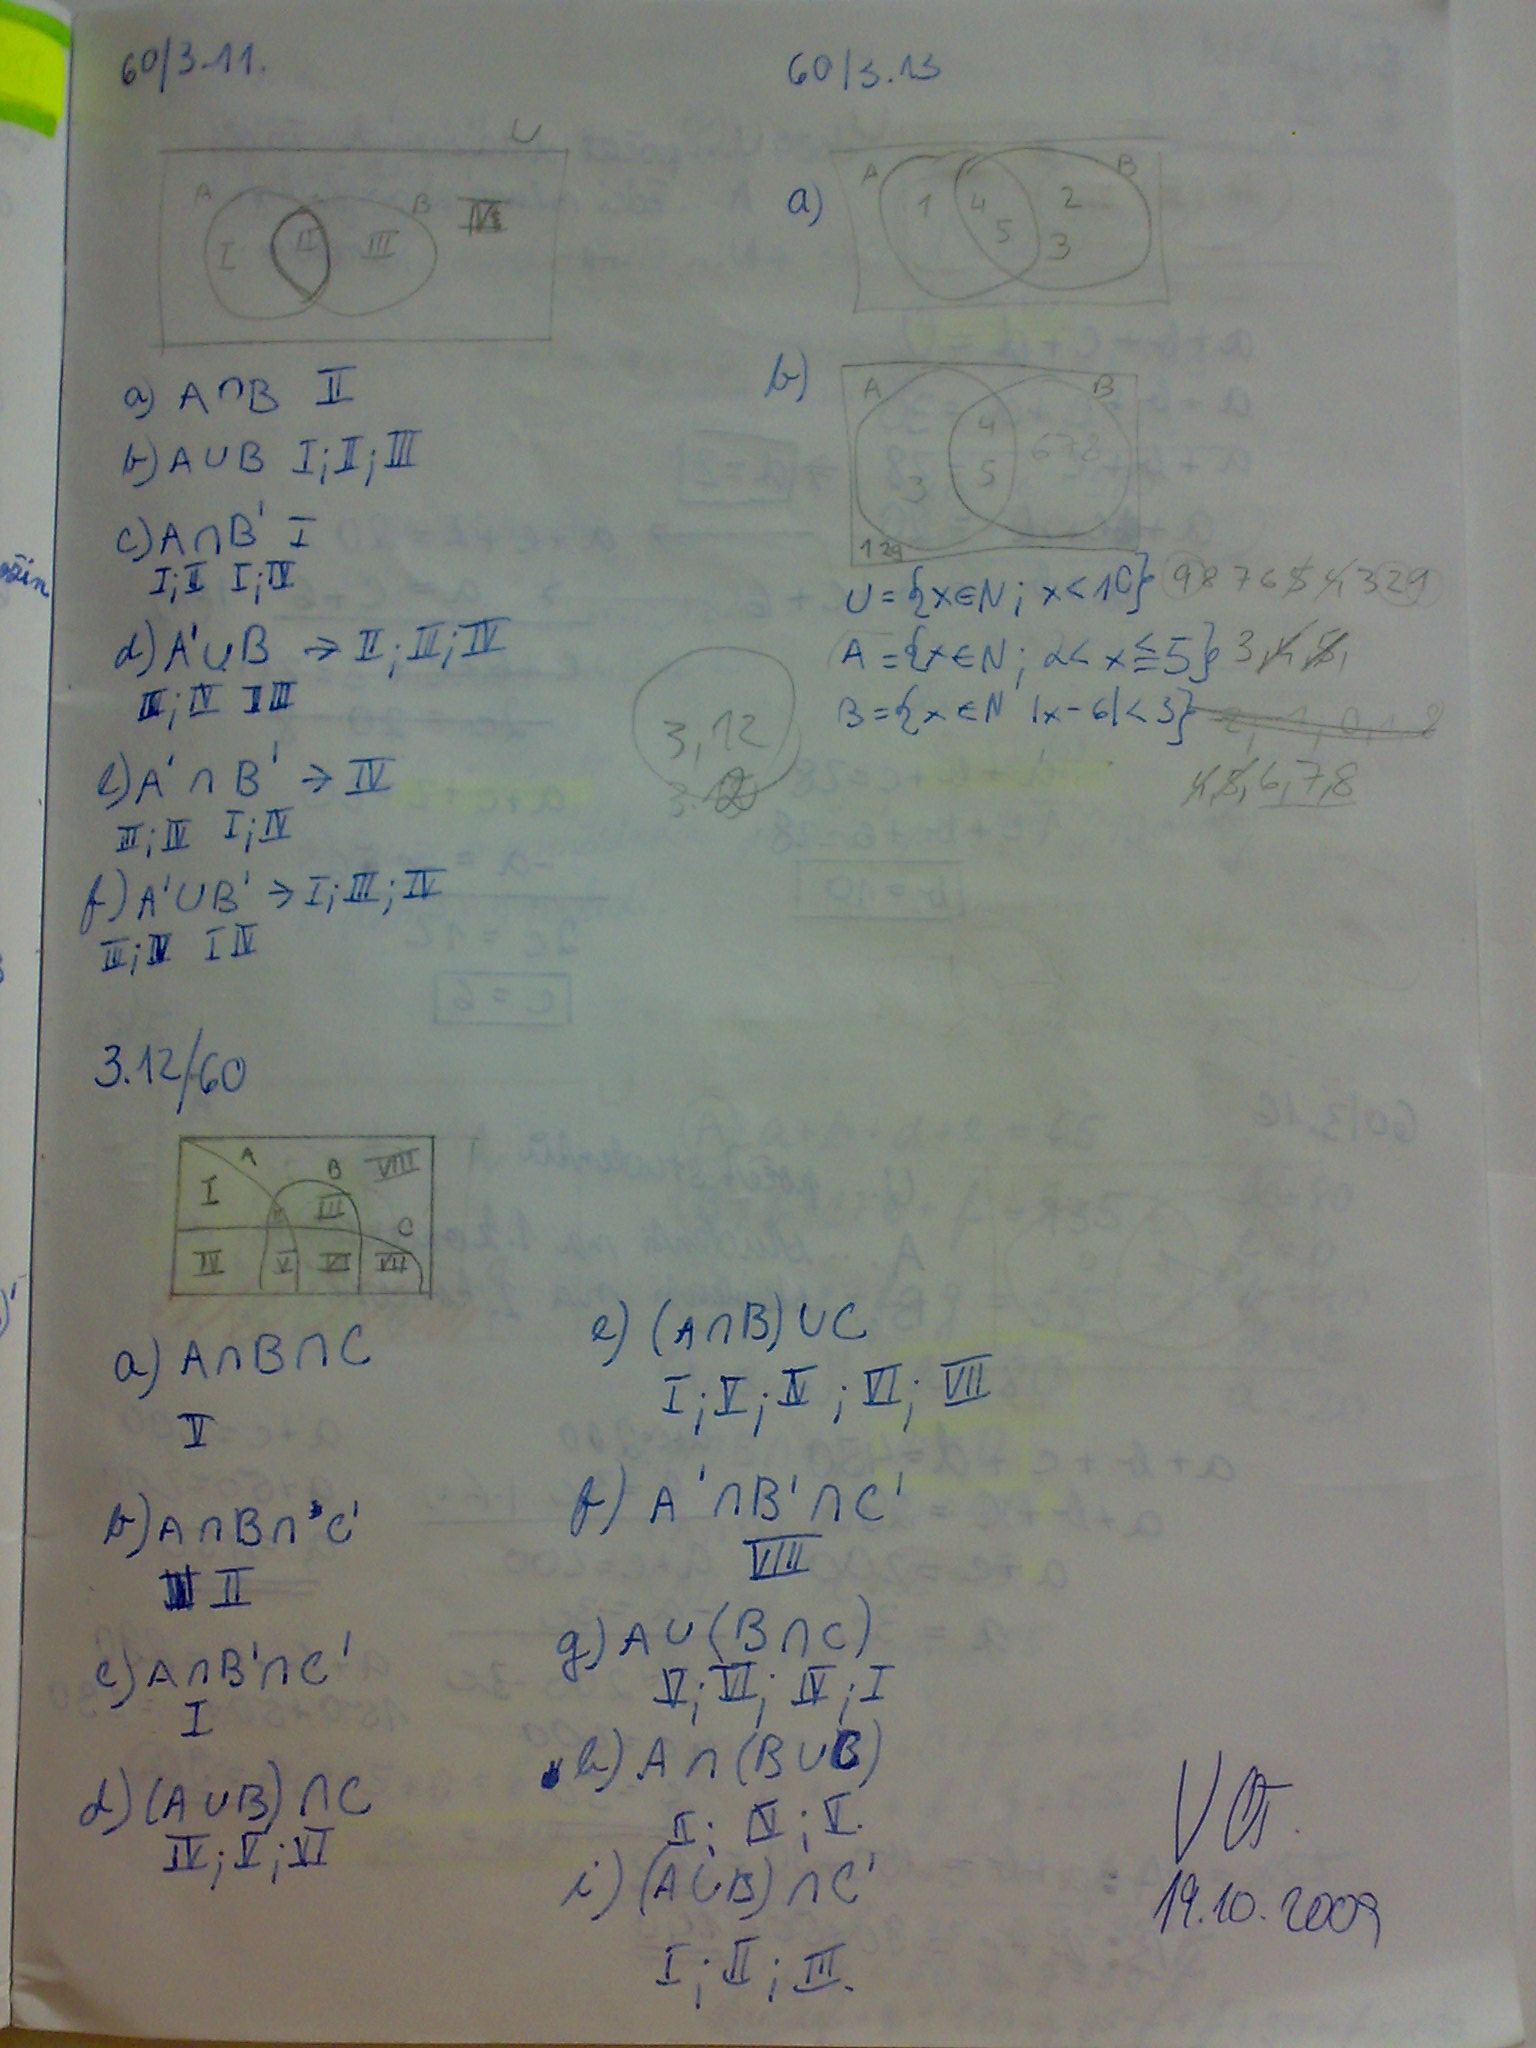 60/3.11.
U
A B IV
I II III
a) A∩B II
b) A∪B I; II; III
c) A∩B' I
I; II I; IV
d) A'∪B → II; III; IV
III; IV II III
e) A'∩B' → IV
III; IV I; IV
f) A'∪B' → I; III; IV
III; IV I IV
60/3.13
a) A B
1 4 2
5 3
b) A B
4 678
3 5
129
U = {x∈N; x<10} 9 8 7 6 5 4, 3 2 9
A = {x∈N; 2< x ≦5} 3, 4, 5,
B = {x∈N |x-6|<3} 2, 1, 0, 1, 2
4, 5, 6, 7, 8
3,12
3.12
3.12/60
A B VIII
I II III C
IV V VI VII
a) A∩B∩C
V
b) A∩B∩C'
II
c) A∩B'∩C'
I
d) (A∪B)∩C
IV; V; VI
e) (A∩B)∪C
I; V; IV; VI; VII
f) A'∩B'∩C'
VIII
g) A∪(B∩C)
V; VI; IV; I
h) A∩(B∪C)
II; IV; V.
i) (A∪B)∩C'
I; II; III.
19.10.2009